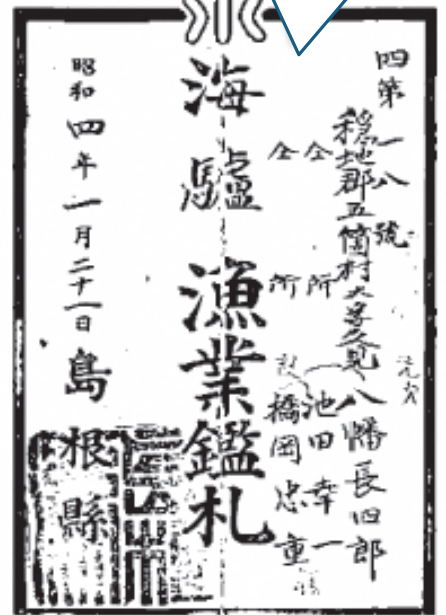 四第一八號
穏地郡五箇村大字久見 八幡長四郎
仝 所 池田幸一
仝 所 橋岡忠重
海驢漁業鑑札
昭和四年一月二十一日
島根縣